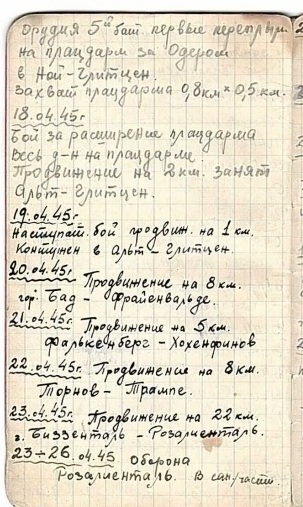 Орудия 5й бат. первые переплыли
на плацдарм за Одером
в Ной-Глитцен.
Захват плацдарма 0,8км × 0,5км.
18.04.45г.
Бой за расширение плацдарма
Весь д-н на плацдарме.
Продвижение на 2км. занят
Альт-Глитцен.
19.04.45г.
Наступат. бой продвиж. на 1 км.
Контужен в Альт-Глитцен.
20.04.45г. Продвижение на 8км
гор. Бад-Фрайенвальде.
21.04.45г. Продвижение на 5км.
Фалькенберг-Хохенфинов
22.04.45г. Продвижение на 8км
Торнов-Трампе.
23.04.45г. Продвижение на 22 км.
г. Биззенталь-Розалиенталь.
23÷26.04.45 оборона
Розалиенталь. В сан/части.